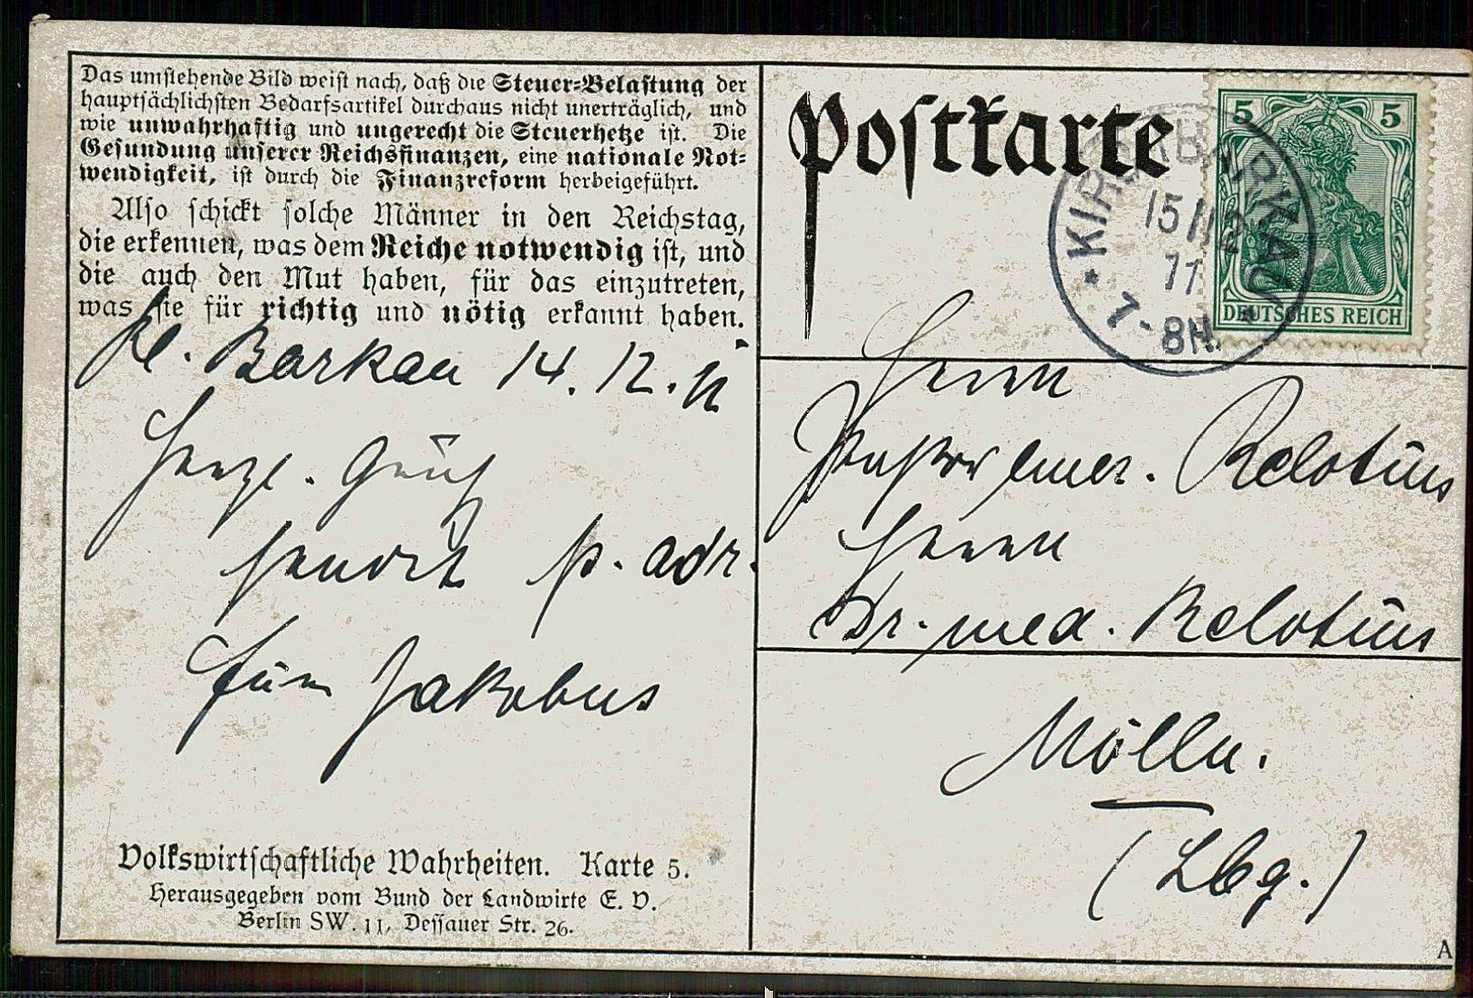 Das umstehende Bild weist nach, daß die Steuer-Belastung der
hauptsächlichsten Bedarfsartikel durchaus nicht unerträglich, und
wie unwahrhaftig und ungerecht die Steuerhetze ist. Die
Gesundung unserer Reichsfinanzen, eine nationale Not-
wendigkeit, ist durch die Finanzreform herbeigeführt.
Also schickt solche Männer in den Reichstag,
die erkennen, was dem Reiche notwendig ist, und
die auch den Mut haben, für das einzutreten,
was sie für richtig und nötig erkannt haben.
Kl. Barkau 14. 12. 11
Herzl. Gruß
sendet p. adr.
Jakobus
Volkswirtschaftliche Wahrheiten. Karte 5.
Herausgegeben vom Bund der Landwirte E. V.
Berlin SW. 11, Dessauer Str. 26.
Postkarte
KIRCHBARKAU
15/12
11
7-8N.
5 5
DEUTSCHES REICH
Herrn
Pastor emer. Relotius
Herrn
Dr. med. Relotius
Mölln.
(Lbg.)
A